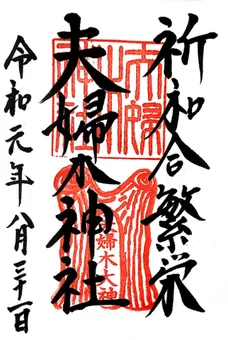 祈和合繁栄
夫婦木神社
令和元年八月三十一日
夫婦木大神